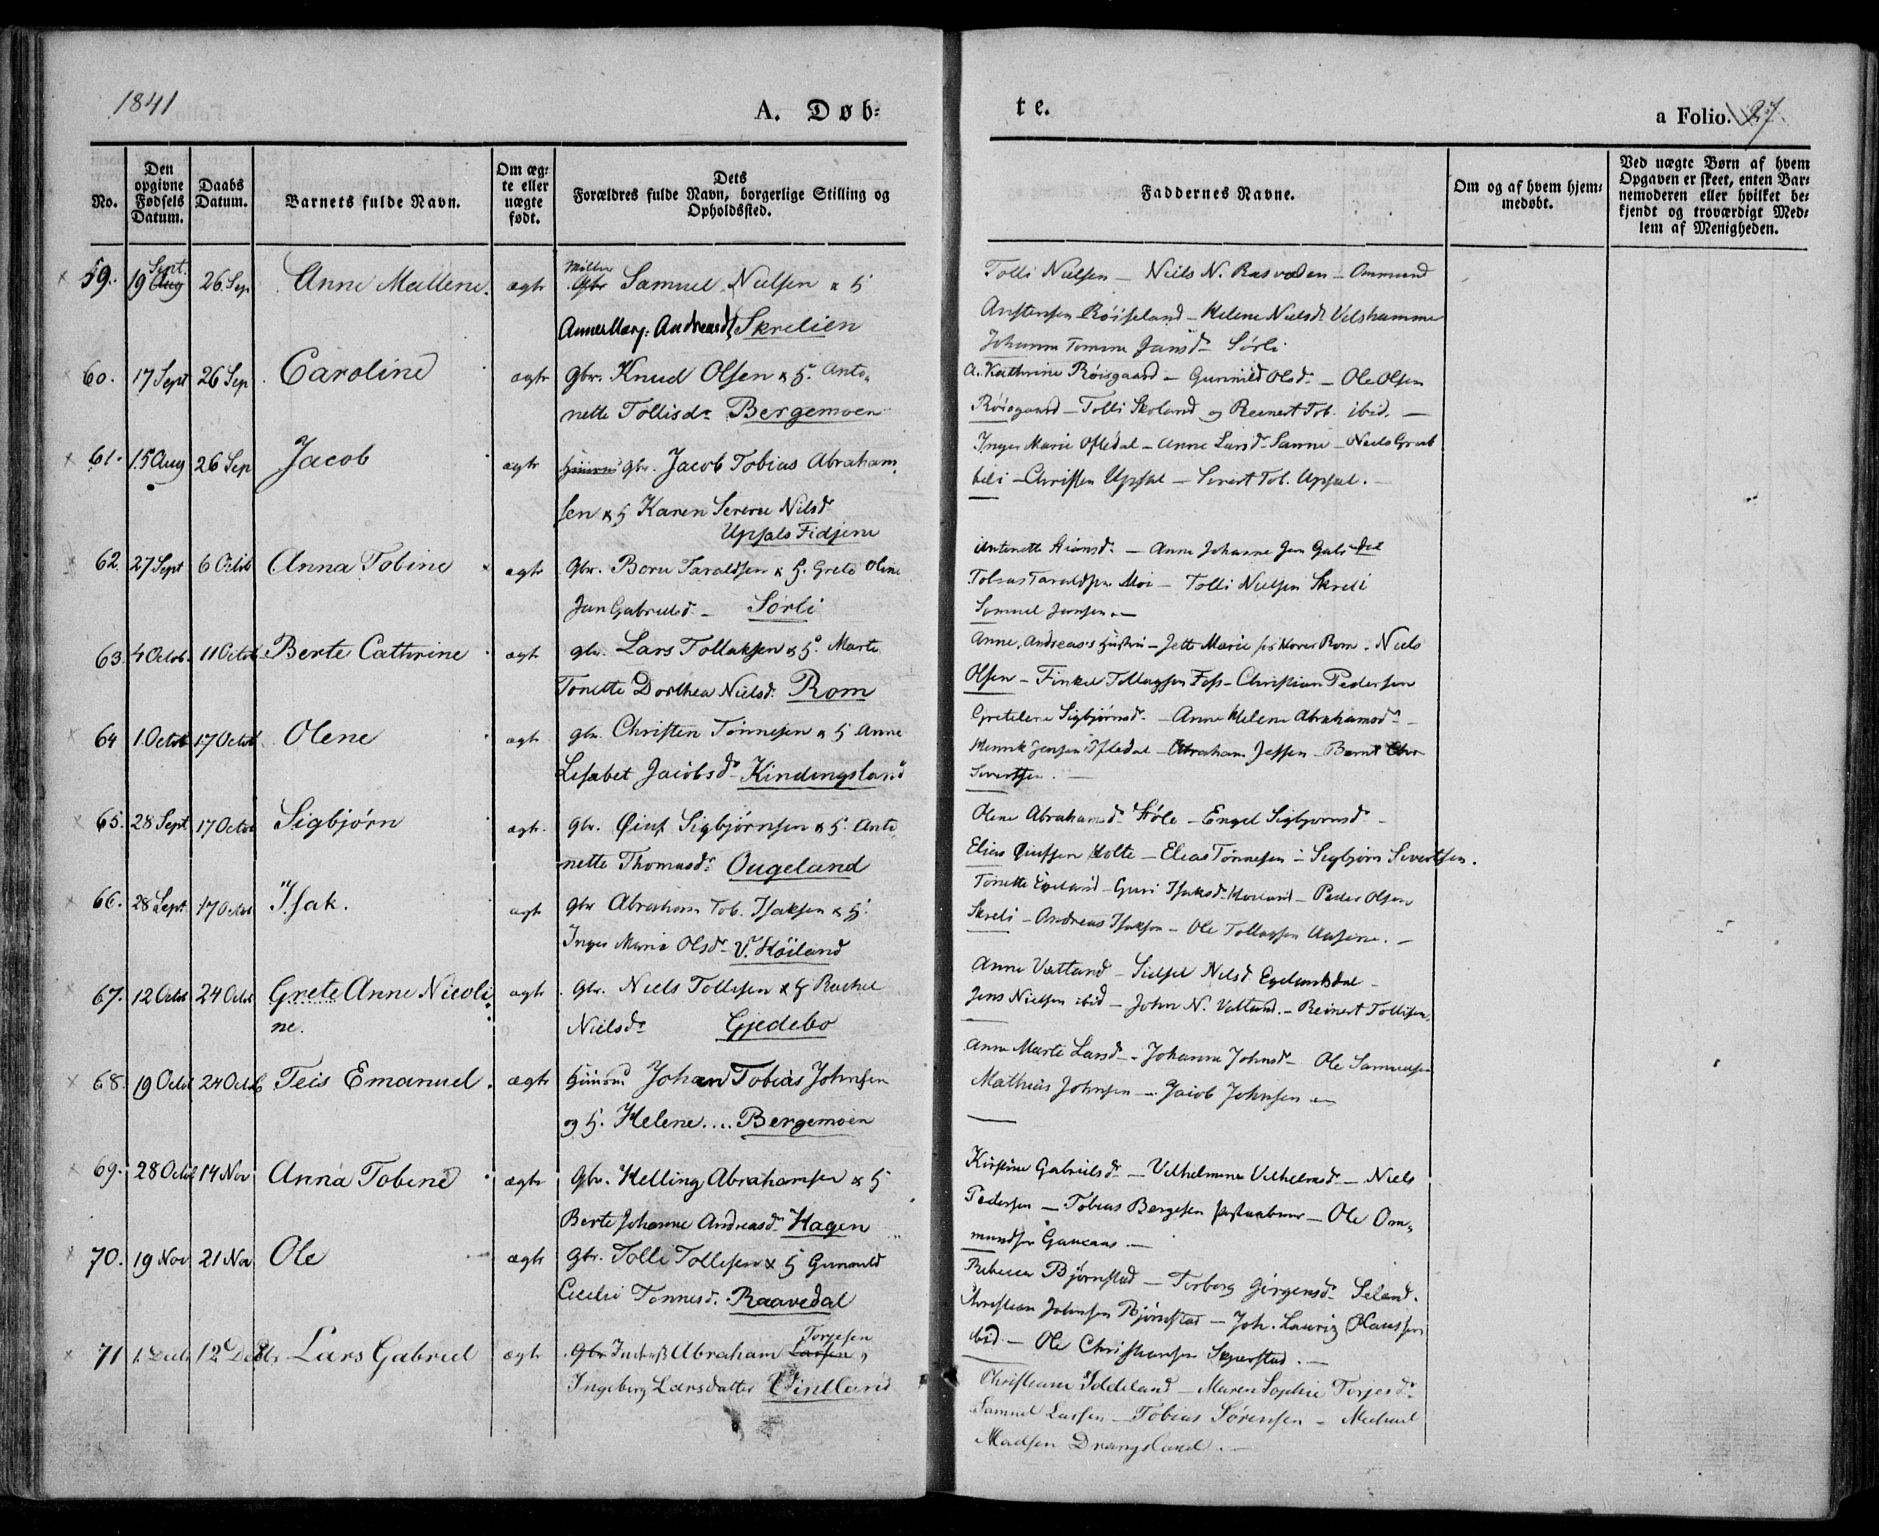 1841
A. Døb-
te.
a Folio. 27.
No.
Den opgivne Fødsels Datum.
Daabs Datum.
Barnets fulde Navn.
Om ægte eller uægte født.
Dets Forældres fulde Navn, borgerlige Stilling og Opholdssted.
Faddernes Navne.
Om og af hvem hjemmedøbt.
Ved uægte Børn af hvem Opgaven er skeet, enten Barnemoderen eller hvilket bekjendt og troværdigt Medlem af Menigheden.
59. 19 Sept. Aug 26 Sep Anne Mallene. ægte Møller Gbr Samuel Nielsen & H
Anne Marg: Andreasd. Skrelien
Tolli Nielsen — Niels N. Rasvaden — Ommund
Anstensen Røiseland — Helene Nielsdr Velshamme
Johanne Tomine Jansdr Sørli
60. 17 Sept 26 Sep Caroline ægte gbr. Knud Olsen & H. Anto-
nette Tollisdr Bergemoen
A. Kathrine Røisgaard — Gunnild Olsdr — Ole Olsen
Røisgaard — Tolli Skoland og Reinert Tob. ibid. —
61. 15 Aug 26 Sep Jacob ægte gbr. Jacob Tobias Abraham
sen & H Karen Serene Nilsd
Upsals Fidjene
Inger Marie Ofledal — Anne Larsd Sanne — Niels Grub
beli — Christen Upsal — Sivert Tob. Upsal. —
62. 27 Sept 6 Octob Anna Tobine ægte Gbr. Boru Taraldsen & H. Grete Oline
Jan Gabrielsd — Sørli
Antonette Stiansd — Anne Johanne Jan Gabrielsd
Tobias Taraldsen Moi — Tolli Nielsen Skreli
Samuel Jansen. —
63. 4 Octob. 11 Octob. Berte Cathrine ægte gbr. Lars Tollaksen & H. Marte
Tonette Dorthea Nielsd. Rom
Anne, Andreas's Hustru — Jette Marie Rom. Niels
Olsen — Finkel Tollagsen Foss — Christian Pedersen
64 1. Octob 17 Octob Olene ægte gbr. Christen Tønnesen & H Anne
Lisabet Jacobsd Kindingsland
Gretelene Sigbjørnsd. — Anne Helene Abrahamsd —
Henrik Jensen Ofledal — Abraham Jessen — Bernt
Sivertsen. —
65. 28 Sept 17 Octob Sigbjørn ægte. gbr. Øiuf Sigbjørnsen & H. Anto
nette Thomasdr Ougeland
Olene Abrahamsd Støle — Engel Sigbjørnsd —
Elias Øiufsen Holte — Elias Tønnesen — Sigbjørn Sivertsen.
66. 28 Sept. 17 Octob Isak. ægte gbr Abraham Tob. Isaksen & H.
Inger Marie Olsd V. Høiland
Tonette Egeland — Guri Isaksd Høiland — Peder Olsen
Skreli — Andreas Isaksen — Ole Tollagsen Aasene. —
67. 12 Octob 24 Octob Grete Anne Nicoli
ne. ægte gbr. Niels Tollisen & H Rachel
Nielsdr Gjedebo
Anne Vatland — Sidsel Nilsd Egelandsdal —
Jens Nielsen ibid — John N. Vatland. — Reinert Tollisen.
68. 19 Octob 24 Octob Teis Emanuel. ægte Huusmd Johan Tobias Johnsen
og H. Helene .... Bergemoen
Anne Marte Larsd — Johanne Johnsd — Ole Samuelsen
Mathias Johnsen — Jacob Johnsen —
69. 28 Octob 14 Nov Anna Tobine ægte Gbr. Helling Abrahamsen & H
Berte Johanne Andreasd. Hagen
Kirstine Gabrielsd — Vilhelmine Vilhelmsd — Niels
Pedersen — Tobias Bergesen — Ole Om-
mundsen Gaucaas —
70. 19 Nov 21 Nov Ole ægte Gbr. Tolli Tollisen & H Gunnild
Cecilie Tønnesd. Raavedal
Rebecca Bjørnestad — Torborg Jørgensd Seland.
Christian Johnsen Bjørnestad — Joh. Lauriz Klaussen
ibid — Ole Christiansen Segerstad. —
71 1. Decb 12 Decbr Lars Gabriel ægte Gbr Inderst Abraham Torjesen Larsen &
Ingeborg Larsdatter Eintland
Christiane Iddeland — Maren Sophie Torjesd.
Samuel Larsen — Tobias Sørensen — Michael
Madsen Drangsland. —